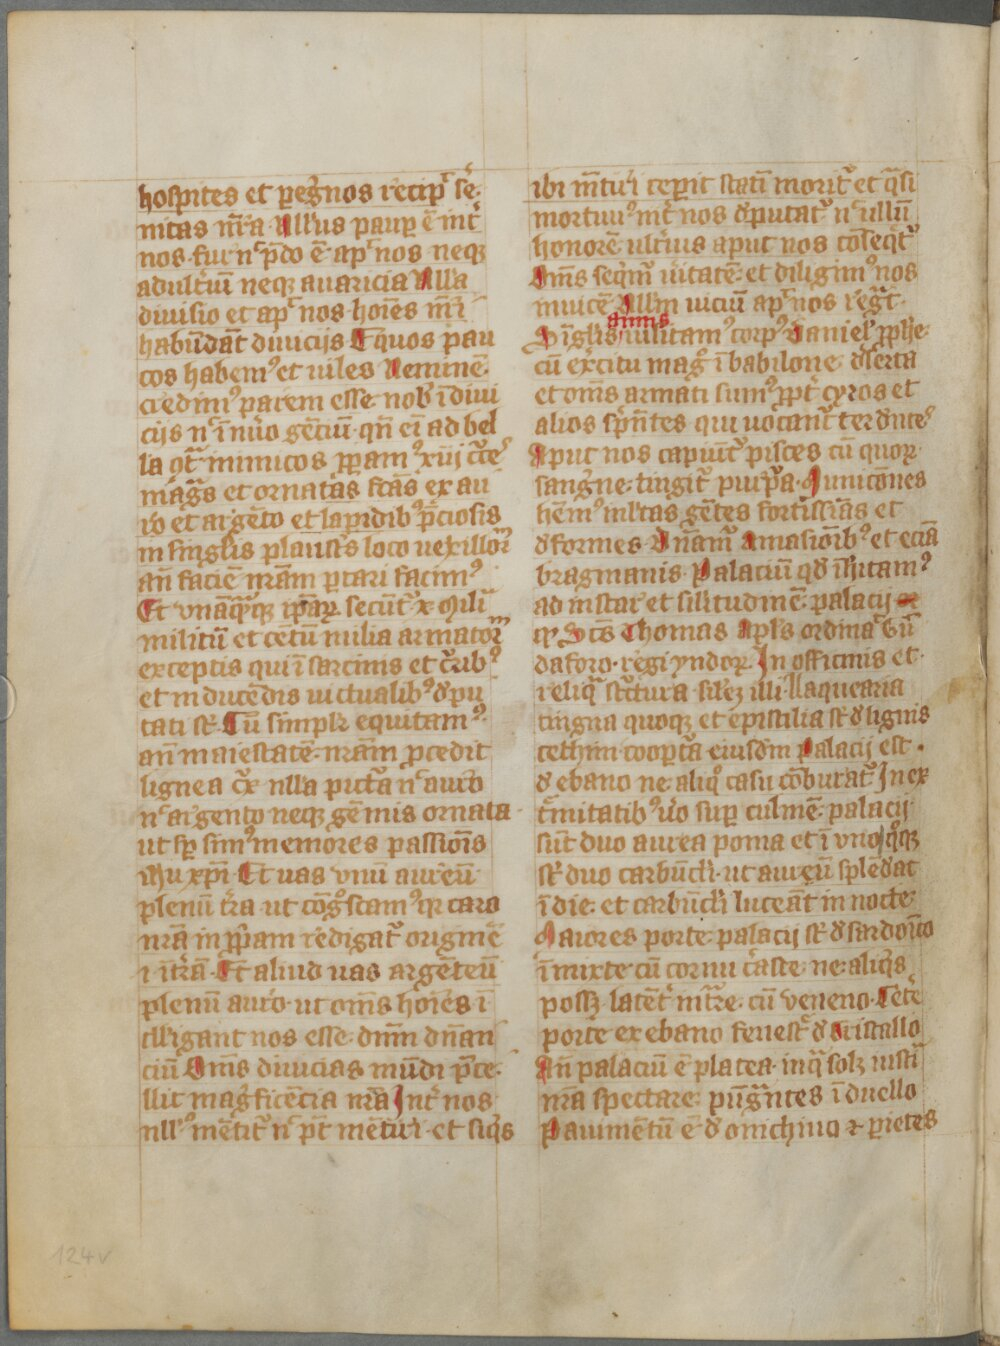 hospites et peg̾nos recip̾ ser̄
nitas nr̄a Nll'us paup̲ ē int̾
nos. fur nͨ p̄do ē apͩ nos neqꝫ
adult̾iū neqꝫ auaricia Nlla
diuisio et apͩ nos. hoīes nr̄i
habūdāt diuicijs Equos pau
cos habemꝰ et uiles Neminē
cꝛedimꝰ parem esse nob̾ ī diui
cijs nͨ ī nu̾o gēciū. qn̄ eī ad bel
la ꝯt̾ inimicos ꝓpam̾ꝰ xiij cͣceˢ
magͣs et ornatas fc̄as ex au
ro et argēto et lapidibꝰ p̄ciosis
in singl'is plaust̾s loco uexilloꝝ
an̄ faciē nr̄am portari facimꝰ
Et vnāq̄qꝫ ip̄aꝝ secūt̾ x Mili
militū et cētū milia armatoꝝ
exceptis qui ī sarcinis et cͬrībꝰ
et inducēdis uictualibꝰ dep̲u
tati st̄. Cū simpl'r equitamꝰ
an̄ maiestatē nr̄am p̲cedit
lignea cͬx nll'a pictͣa nͨ auro
nͨ argento neqꝫ gēmis ornata
ut sp̲ simꝰ memores passiōis
ih̄u xp̄i Et uas vnū aureū
plenū tr̄a ut cōgͦscamꝰ qꝛ caro
nr̄a in ꝓpam redigat̾ originē
.i. ītr̄ā. Et aliud uas argēteū
plenū auro. ut om̄s hoīes ī
tll'igant nos esse dnm̄ dn̄an
ciū Om̄s diuicias mūdi p̄ce
llit mag̾ficēcia nr̄a Int̾ nos
nll'ꝰ mētit̾ nͨ pt̄ mētiri. et siq̾s
ibi mētiri cep̲it statī morit̾ et qͣsi
mortuuꝰ int̾ nos deputat̾ nͨ ullū
honorē ult̾ius aput nos cōseqt̾
Om̄s seq̾m̾ v̾itatē et diligimꝰ nos
inuicē Nllm̄ uiciū apͩ nos regͣt
annis
Singl'is uisitamꝰ corpꝰ Daniel' ꝓph̄e
cū exc̾itu magͦ ī babilone deserta
et om̄s armati sumꝰ ꝓpt̾ tyros et
alios sp̲ent̾es qui uocant̾ terdnteˢ
Aput nos capiūt̾ pisces cū quoꝝ
sang̾ne tingit̾ purp̲a. Municōnes
hēmꝰ mltas gētes fortissīas et
deformes Dn̄am̾ Amasioībꝰ et eciā
bragmanis Palaciū qd̾ īh̾itamꝰ
ad instar et sil'itudinē palacij
qꝫ Sc̄s Thomas Apl's ordinaͥt Gū
daforo. regi yndoꝝ. In officinis et
reliqͣ st̾ctura sil'e illi llaquearia
tingna quoqꝫ et epistilia st̄ de lignis
cethin coop̲ta eiusdm̄ Palacij est
de ebano ne aliqͦ casu cōburat̾ In ex
t̾mitatibꝰ v̾o sup̲ culmē palacij
sūt duo aurea poma et ī vnoqͦqꝫ
st̄ duo carbūcl'i. ut aurū splēdāt
ī die et carbūcl'i luceāt in nocte
Maiores porte palacij st̄ de sardonīo
īmixte cū cornu c̾aste ne aliq̾s
possꝫ latēt̾ int̾re cū ueneno. Cet̾e
porte ex ebano fenest̾ de Cristallo
An̄ palaciū ē platea inqͣ solꝫ iustī
nr̄a spectare pūgͣntes ī duello
Pauimētū ē de onichino ⁊ parietes
124v